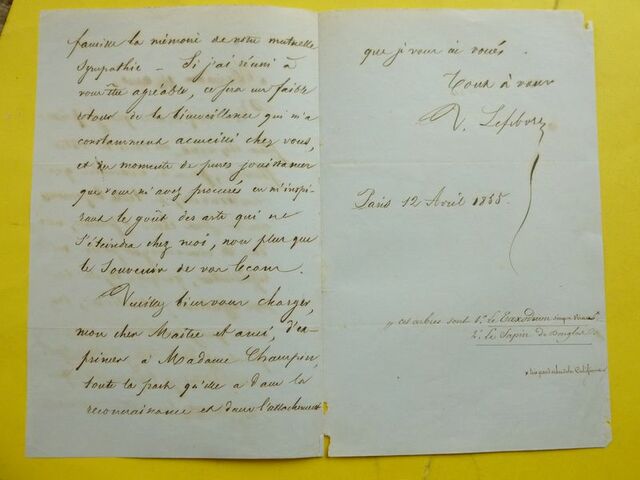 famille la mémoire de notre mutuelle
sympathie — Si j'ai réussi à
vous être agréable, ce sera un faible
retour de la bienveillance qui m'a
constamment accueilli chez vous,
et des moments de pures jouissances
que vous m'avez procurés en m'inspi-
rant le goût des arts qui ne
s'éteindra chez moi, non plus que
le souvenir de vos leçons.
Veuillez bien vous charger,
mon cher Maître et ami, d'ex-
primer à Madame Champin,
toute la part qu'elle a dans la
reconnaissance et dans l'attachement
que je vous ai voués.
Tout à vous
Lefebvre
Paris 12 Avril 1855.
ces arbres sont 1º le Taxodium
2º le Sapin de Douglas